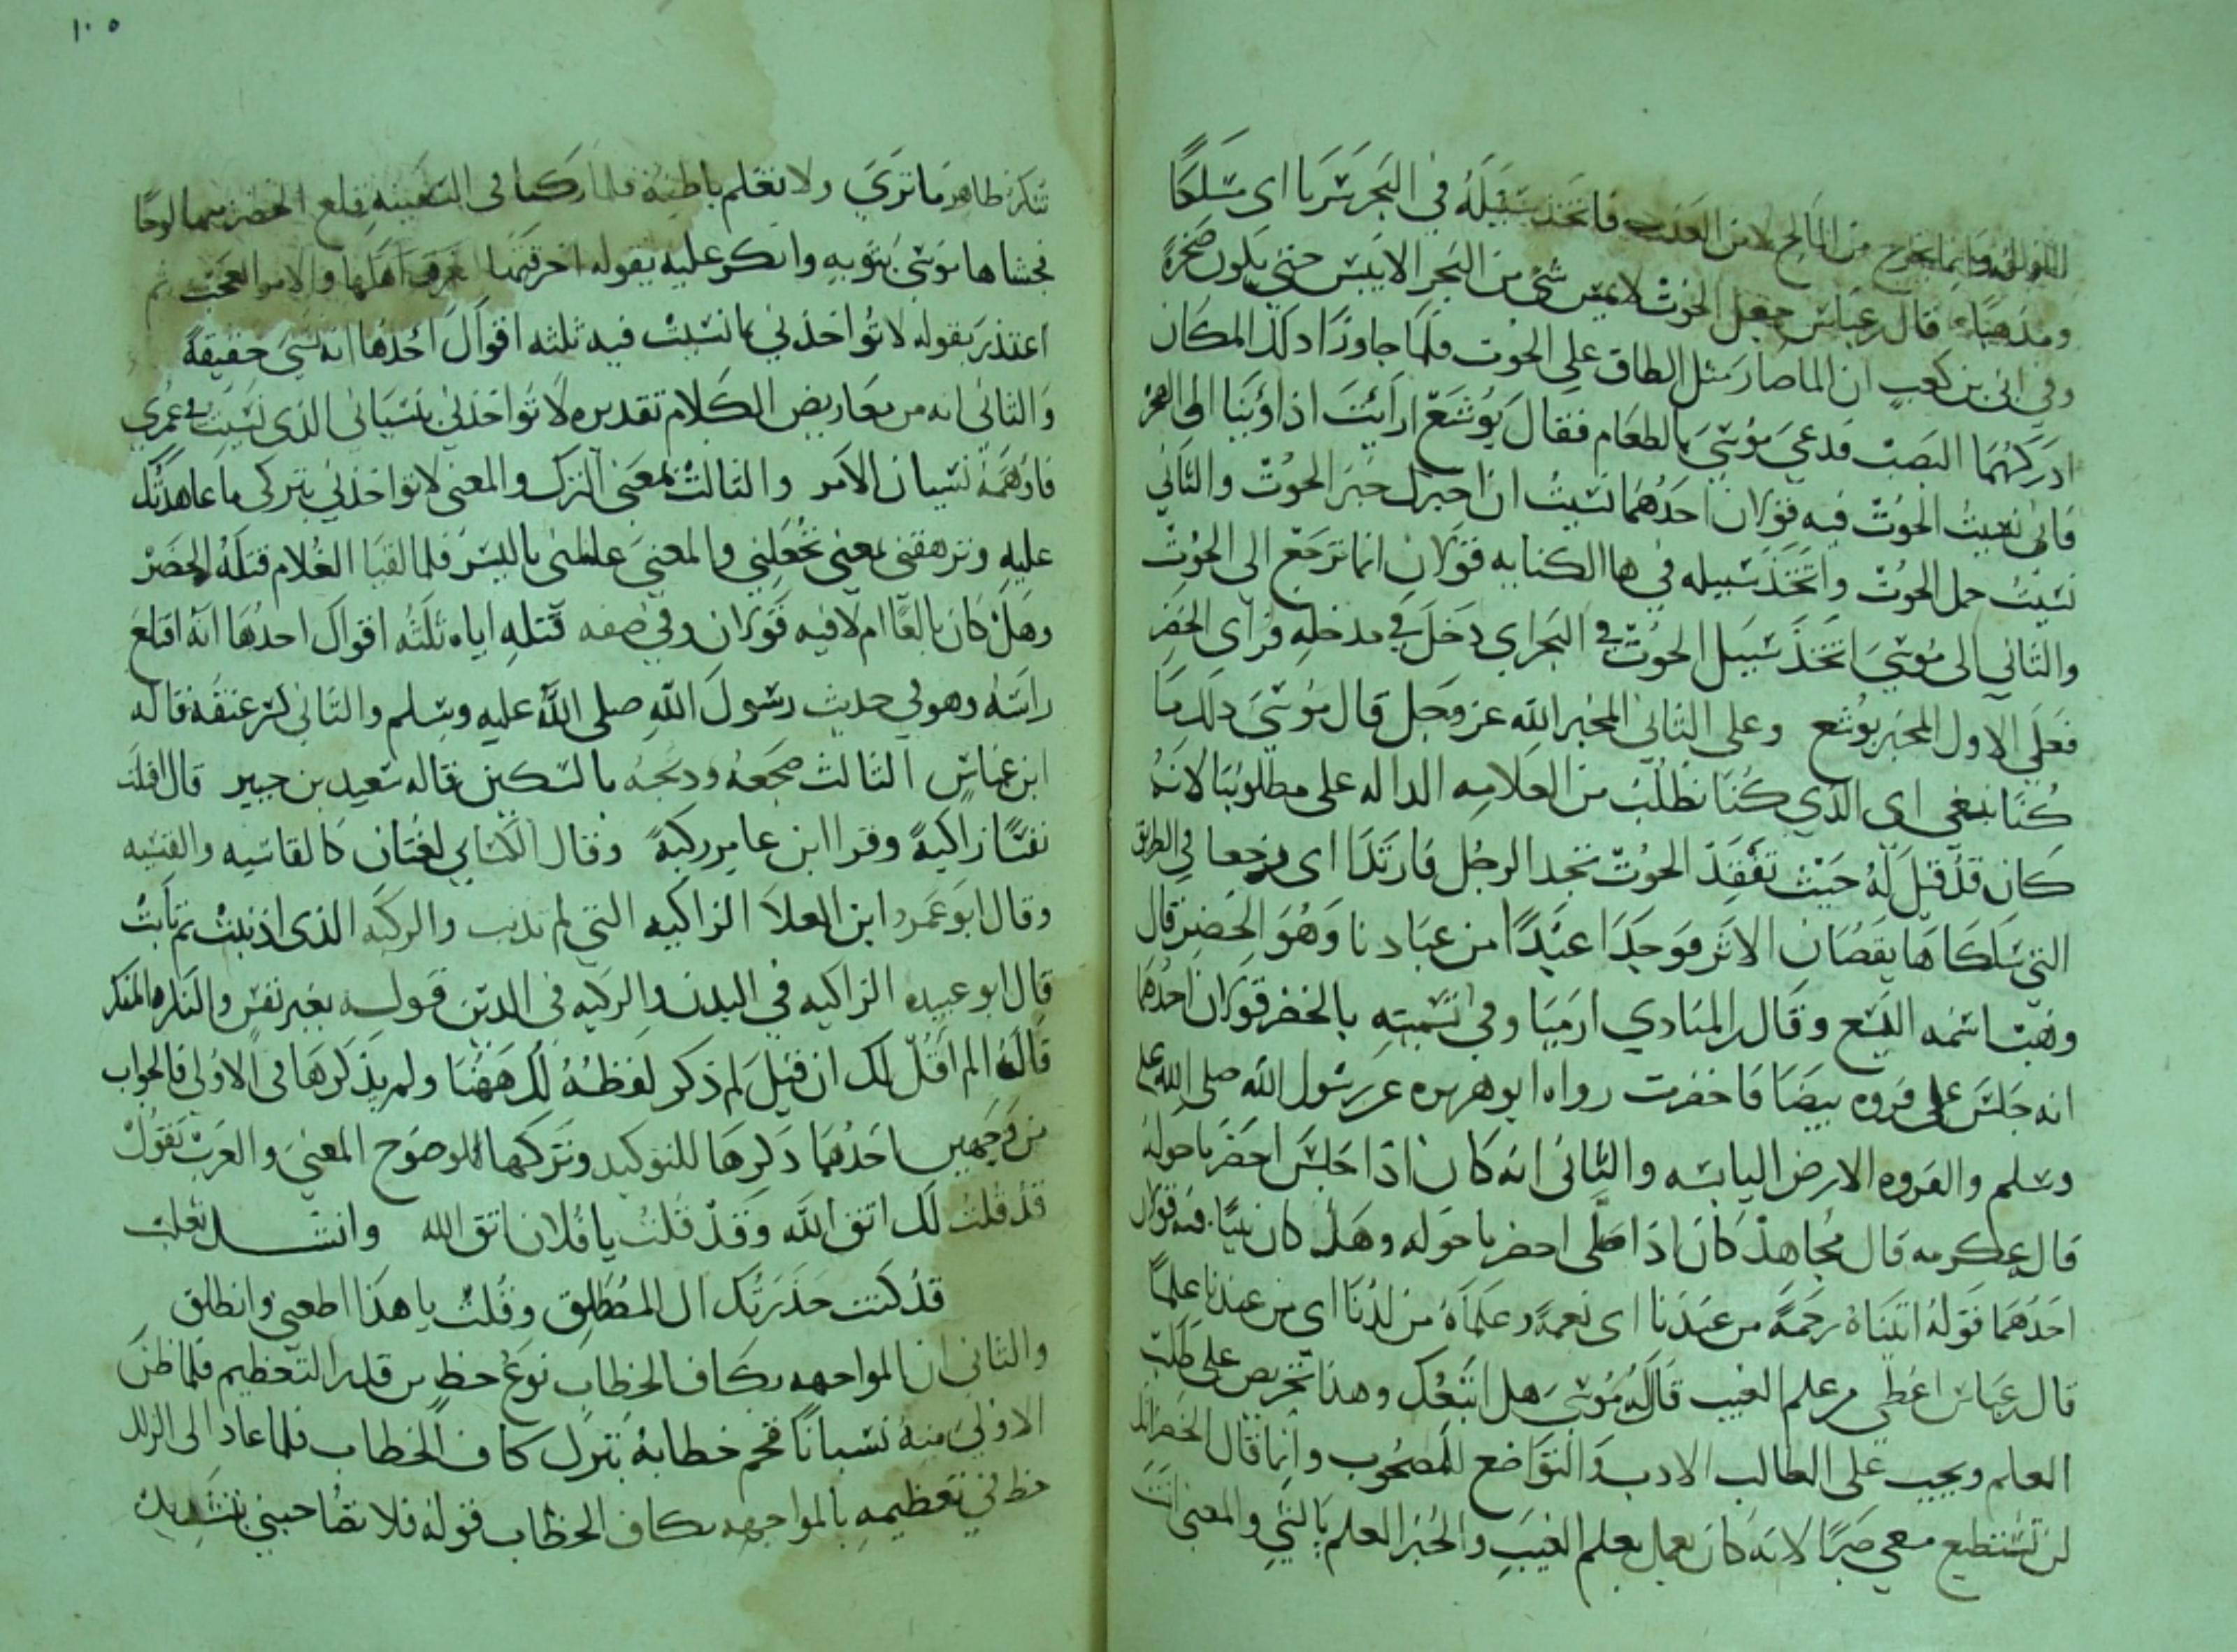 اللولو وانما يخرج من المالح لا من العذب فاتخذ سبيله في البحر سربا اى مسلكا
ومذهبا قال ابن عباس جعل الحوت لا يمس شي من البحر الا يبس حتى يكون صخرة
وفي ابى بن كعب ان الما صار مثل الطاق على الحوت فلما جاوزا ذلك المكان
ادركهما النصب فدعى موسى بالطعام فقال يوشع ارايت اذ اوينا الى الصخره
فانى نسيت الحوت فيه قولان احدهما نسيت ان اخبرك خبر الحوت والثاني
نسيت حمل الحوت واتخذ سبيله في ها الكنايه قولان انها ترجع الى الحوت
والثاني الى موسى اتخذ سبيل الحوت في البحر اى دخل في مدخله فراى الخضر
فعلى الاول المخبر يوشع وعلى الثاني المخبر الله عز وجل قال موسى ذلك ما
كنا نبغى اى الذي كنا نطلب من العلامه الداله على مطلوبنا لانه
كان قد قيل له حيث تفقد الحوت تجد الرجل فارتدا اى رجعا في الطريق
التي سلكاها يقصان الاثر فوجدا عبدا من عبادنا وهو الخضر قال
وهب اسمه اليسع وقال ابن المنادي ارميا وفي تسميته بالخضر قولان احدهما
انه جلس على فروه بيضا فاخضرت رواه ابو هريره عن رسول الله صلى الله عليه
وسلم والفروه الارض اليابسه والثانى انه كان اذا جلس اخضر ما حوله
قال عكرمه قال مجاهد كان اذا صلى اخضر ما حوله وهل كان نبيا فيه قولان
احدهما قوله اتيناه رحمة من عندنا اى نعمة وعلمناه من لدنا اى من عندنا علما
قال ابن عباس اعطى من علم الغيب قال له موسى هل اتبعك وهذا تحريص على طلب
العلم ويجب على الطالب الادب والتواضع للمصحوب وانما قال الخضر انك
لن تستطيع معى صبرا لانه كان يعمل بعلم الغيب والخبر العلم بالشي والمعنى انت
١٠٥
تنكر ظاهر ما ترى ولا تعلم باطنه فلما ركبا فى السفينه قلع الخضر منها لوحا
فحشاها موسى بثوبه وانكر عليه بقوله اخرقتها لتغرق اهلها والامر العجب ثم
اعتذر بقوله لا تواخذني بما نسيت فيه ثلثه اقوال احدها انه نسى حقيقة
والثانى انه من معاريض الكلام تقديره لا تواخذني بنسيانى الذى نسيت فى عمري
فاوهمه نسيان الامر والثالث بمعنى الترك والمعنى لا تواخذني بتركى ما عاهدتك
عليه وترهقنى بمعنى تعجلني والمعنى عاملنى باليسر فلما لقيا الغلام قتله الخضر
وهل كان بالغا ام لا فيه قولان وفي صفه قتله اياه ثلثه اقوال احدها انه اقتلع
راسه وهو في حديث رسول الله صلى الله عليه وسلم والثانى كسر عنقه قاله
ابن عباس الثالث ضجعه وذبحه بالسكين قاله سعيد بن جبير قال اقتلت
نفسا زاكية وقرا ابن عامر زكية وقال الكسايى لغتان كالقاسيه والقسيه
وقال ابو عمرو ابن العلا الزاكيه التي لم تذنب والزكيه الذى اذنبت ثم تابت
قال ابو عبيده الزاكيه في البدن والزكيه فى الدين قوله بغير نفس والنكر المنكر
قاله الم اقل لك ان قيل لم ذكر لفظه لك ههنا ولم يذكرها فى الاولى فالجواب
من وجهين احدهما ذكرها للتوكيد وتركها لوضوح المعنى والعرب تقول
قد قلت لك اتق الله وقد قلت يا فلان اتق الله وانشد ثعلب
قد كنت حذرتك ال المصطلق وقلت يا هذا اطعني وانطلق
والثانى ان المواجهه بكاف الخطاب نوع حط من قدر التعظيم فلما ظن
الاولى منه نسيانا فخم خطابه بترك كاف الخطاب فلما عاد الى الزلل
حط في تعظيمه بالمواجهه بكاف الخطاب قوله فلا تصاحبني بتشديد